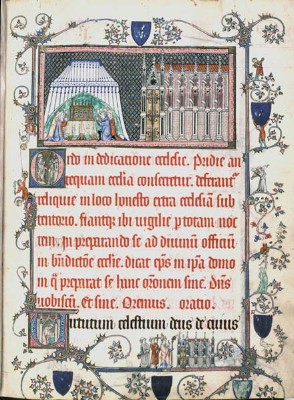 Ordo in dedicatione ecclesie. Pridie an
tequam ecclia consecretur. deferantr
reliquie in loco honesto extra ecclesiam sub
tentorio. fiantqz ibi vigilie p totam noc
tem. In preparando se ad divinum officium
in bndictoe ecclesie. dicat eps in ipa domo
in q preparat se hanc oronem sine. Dns
vobiscum. et sine. Oremus. oratio.
Virtutum celestium deus de cuius